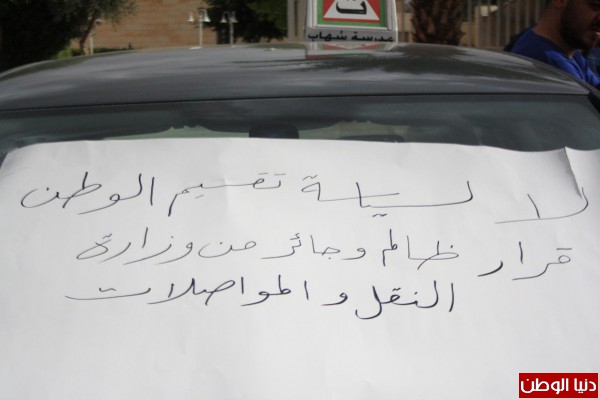 ت
مدرسة شهاب
لا لسياسة تقسيم الوطن
قرار ظالم وجائر من وزارة
النقل و المواصلات
دنيا الوطن